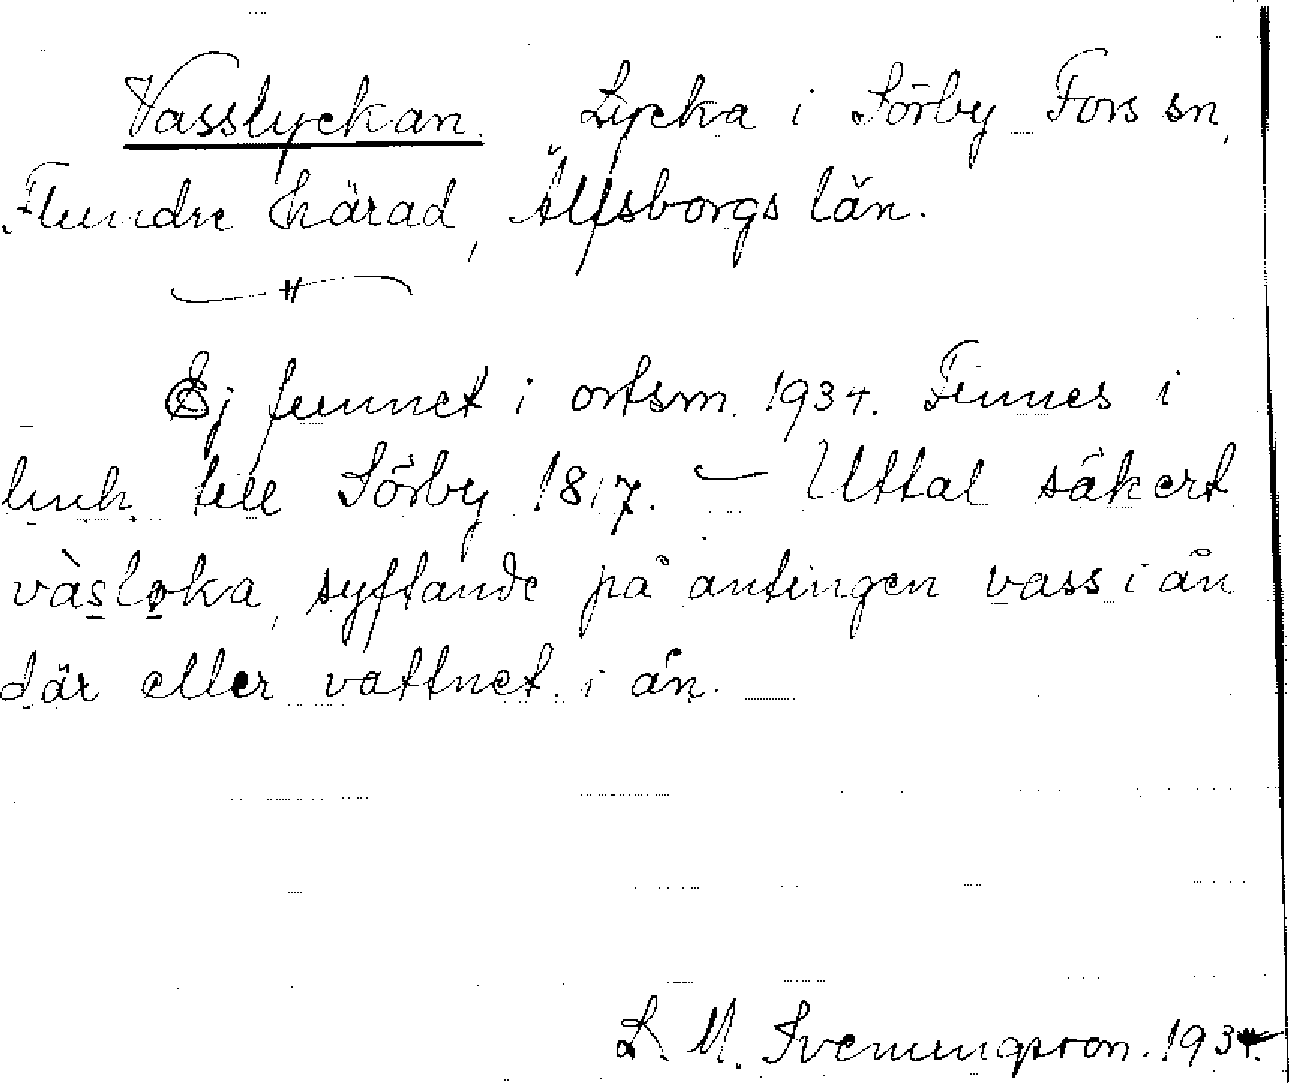 Vasslyckan. Lycka i Sörby Fors sn,
Flundre härad, Älfsborgs län.
Ej funnet i ortsm. 1934. Finnes i
till Sörby 1817. — Uttal säkert
vàsloka, syftande på antingen vass i ån
där eller vattnet i ån.
L. M. Svenungsson. 1934.